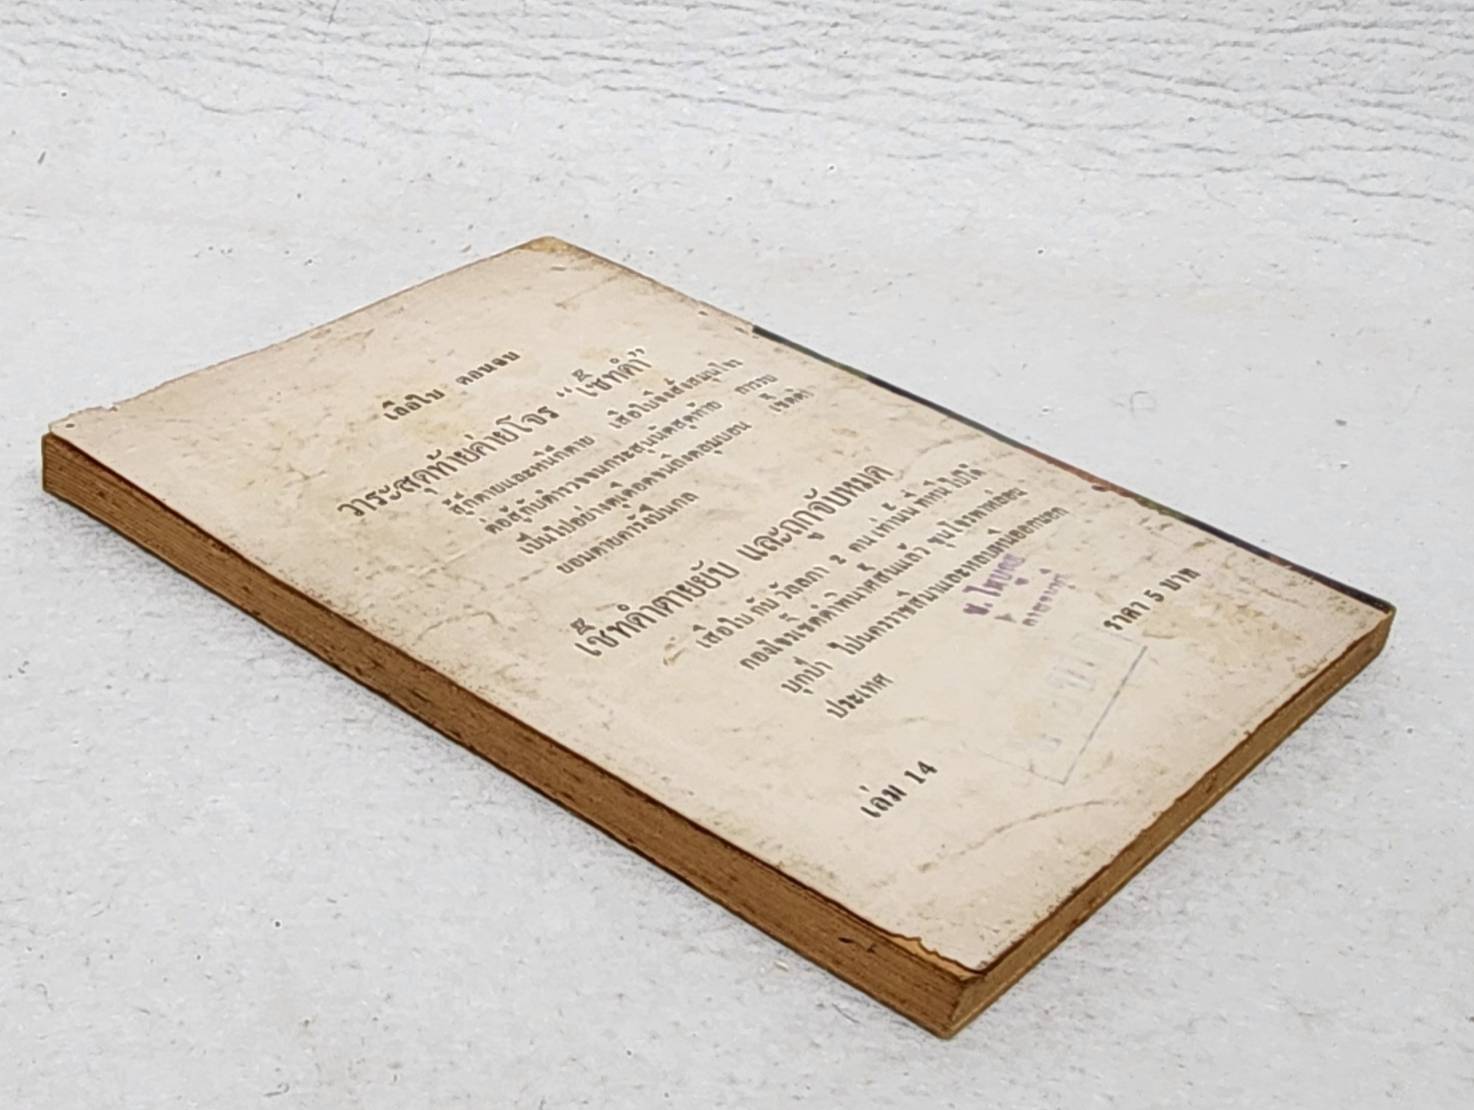 เสือใบ ตอนจบ
วาระสุดท้ายค่ายโจร “เช็ทดำ”
สู้ก็ตายและหนีก็ตาย เสือใบจึงสั่งสมุนโจร
ต่อสู้กับตำรวจจนกระสุนนัดสุดท้าย การรบ
เป็นไปอย่างดุเดือดจนถึงตอมุมบอน
ยอมตายคารังปืนกล
เช็ทดำตายยับ และถูกจับหมด
เสือใบ กับ วัลลภา 2 คน เท่านั้น ที่หนีไปได้
กองโจรเช็ทดำพินาศสิ้นแล้ว ขุนโจรพาหล่อน
บุกป่า ไปนครราชสีมาและหลบหนีออกนอก
ประเทศ
ราคา 5 บาท
เล่ม 14